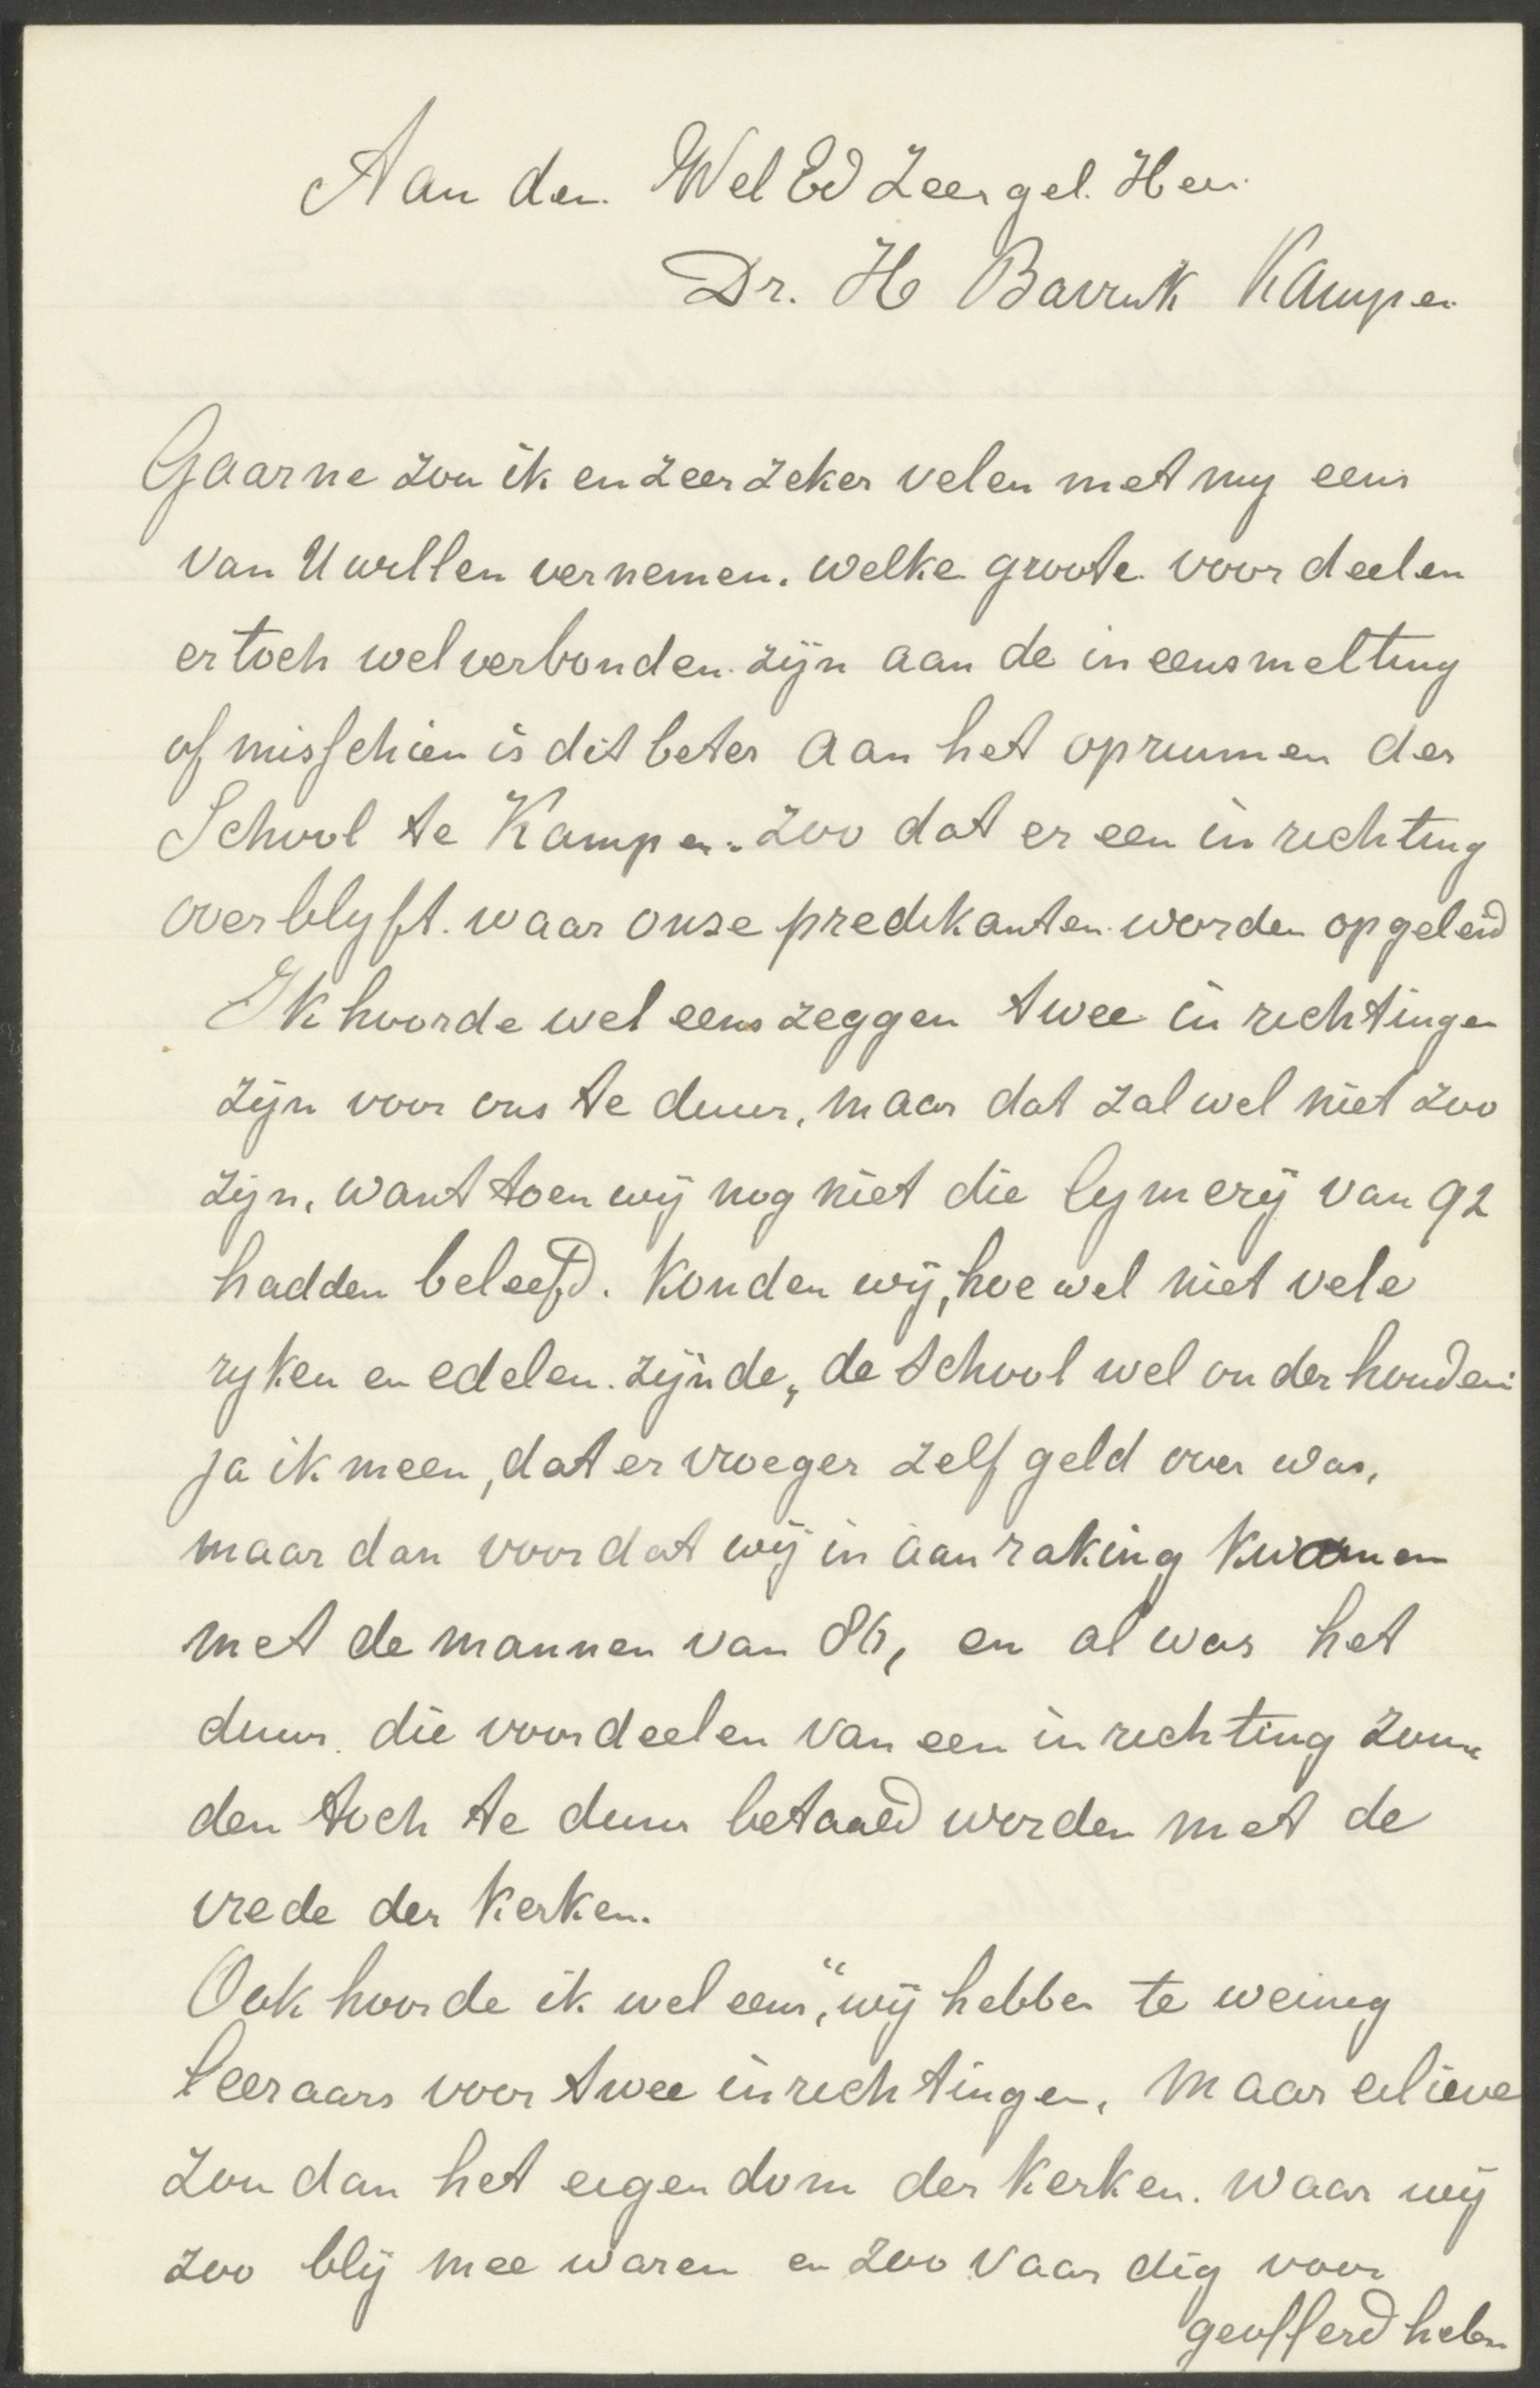 Aan den Wel Ed Zeer gel. Heer
Dr. H Bavink Kampen
Gaarne zou ik en zeer zeker velen met my eens
van U willen vernemen. welke groote voordeelen
er toch wel verbonden zijn aan de ineensmelting
of misschien is dit beter aan het opruimen der
School te Kampen. zoo dat er een inrichting
overblyft. waar onze predikanten worden opgeleid
Ik hoorde wel eens zeggen twee inrichtingen
zijn voor ons te duur, maar dat zal wel niet zoo
zijn, want toen wij nog niet die lymerij van 92
hadden beleefd. konden wij, hoewel niet vele
ryken en edelen zijnde, de school wel onderhouden
ja ik meen, dat er vroeger zelf geld over was,
maar dan voordat wij in aanraking kwamen
met de mannen van 86, en al was het
duur. die voordeelen van een inrichting zou„
den toch te duur betaald worden met de
vrede der kerken.
Ook hoorde ik wel eens, "wij hebben te weinig
leeraars voor twee inrichtingen, maar eilieve
zou dan het eigendom der kerken. waar wij
zoo blij mee waren en zoo vaardig voor
geofferd hebn